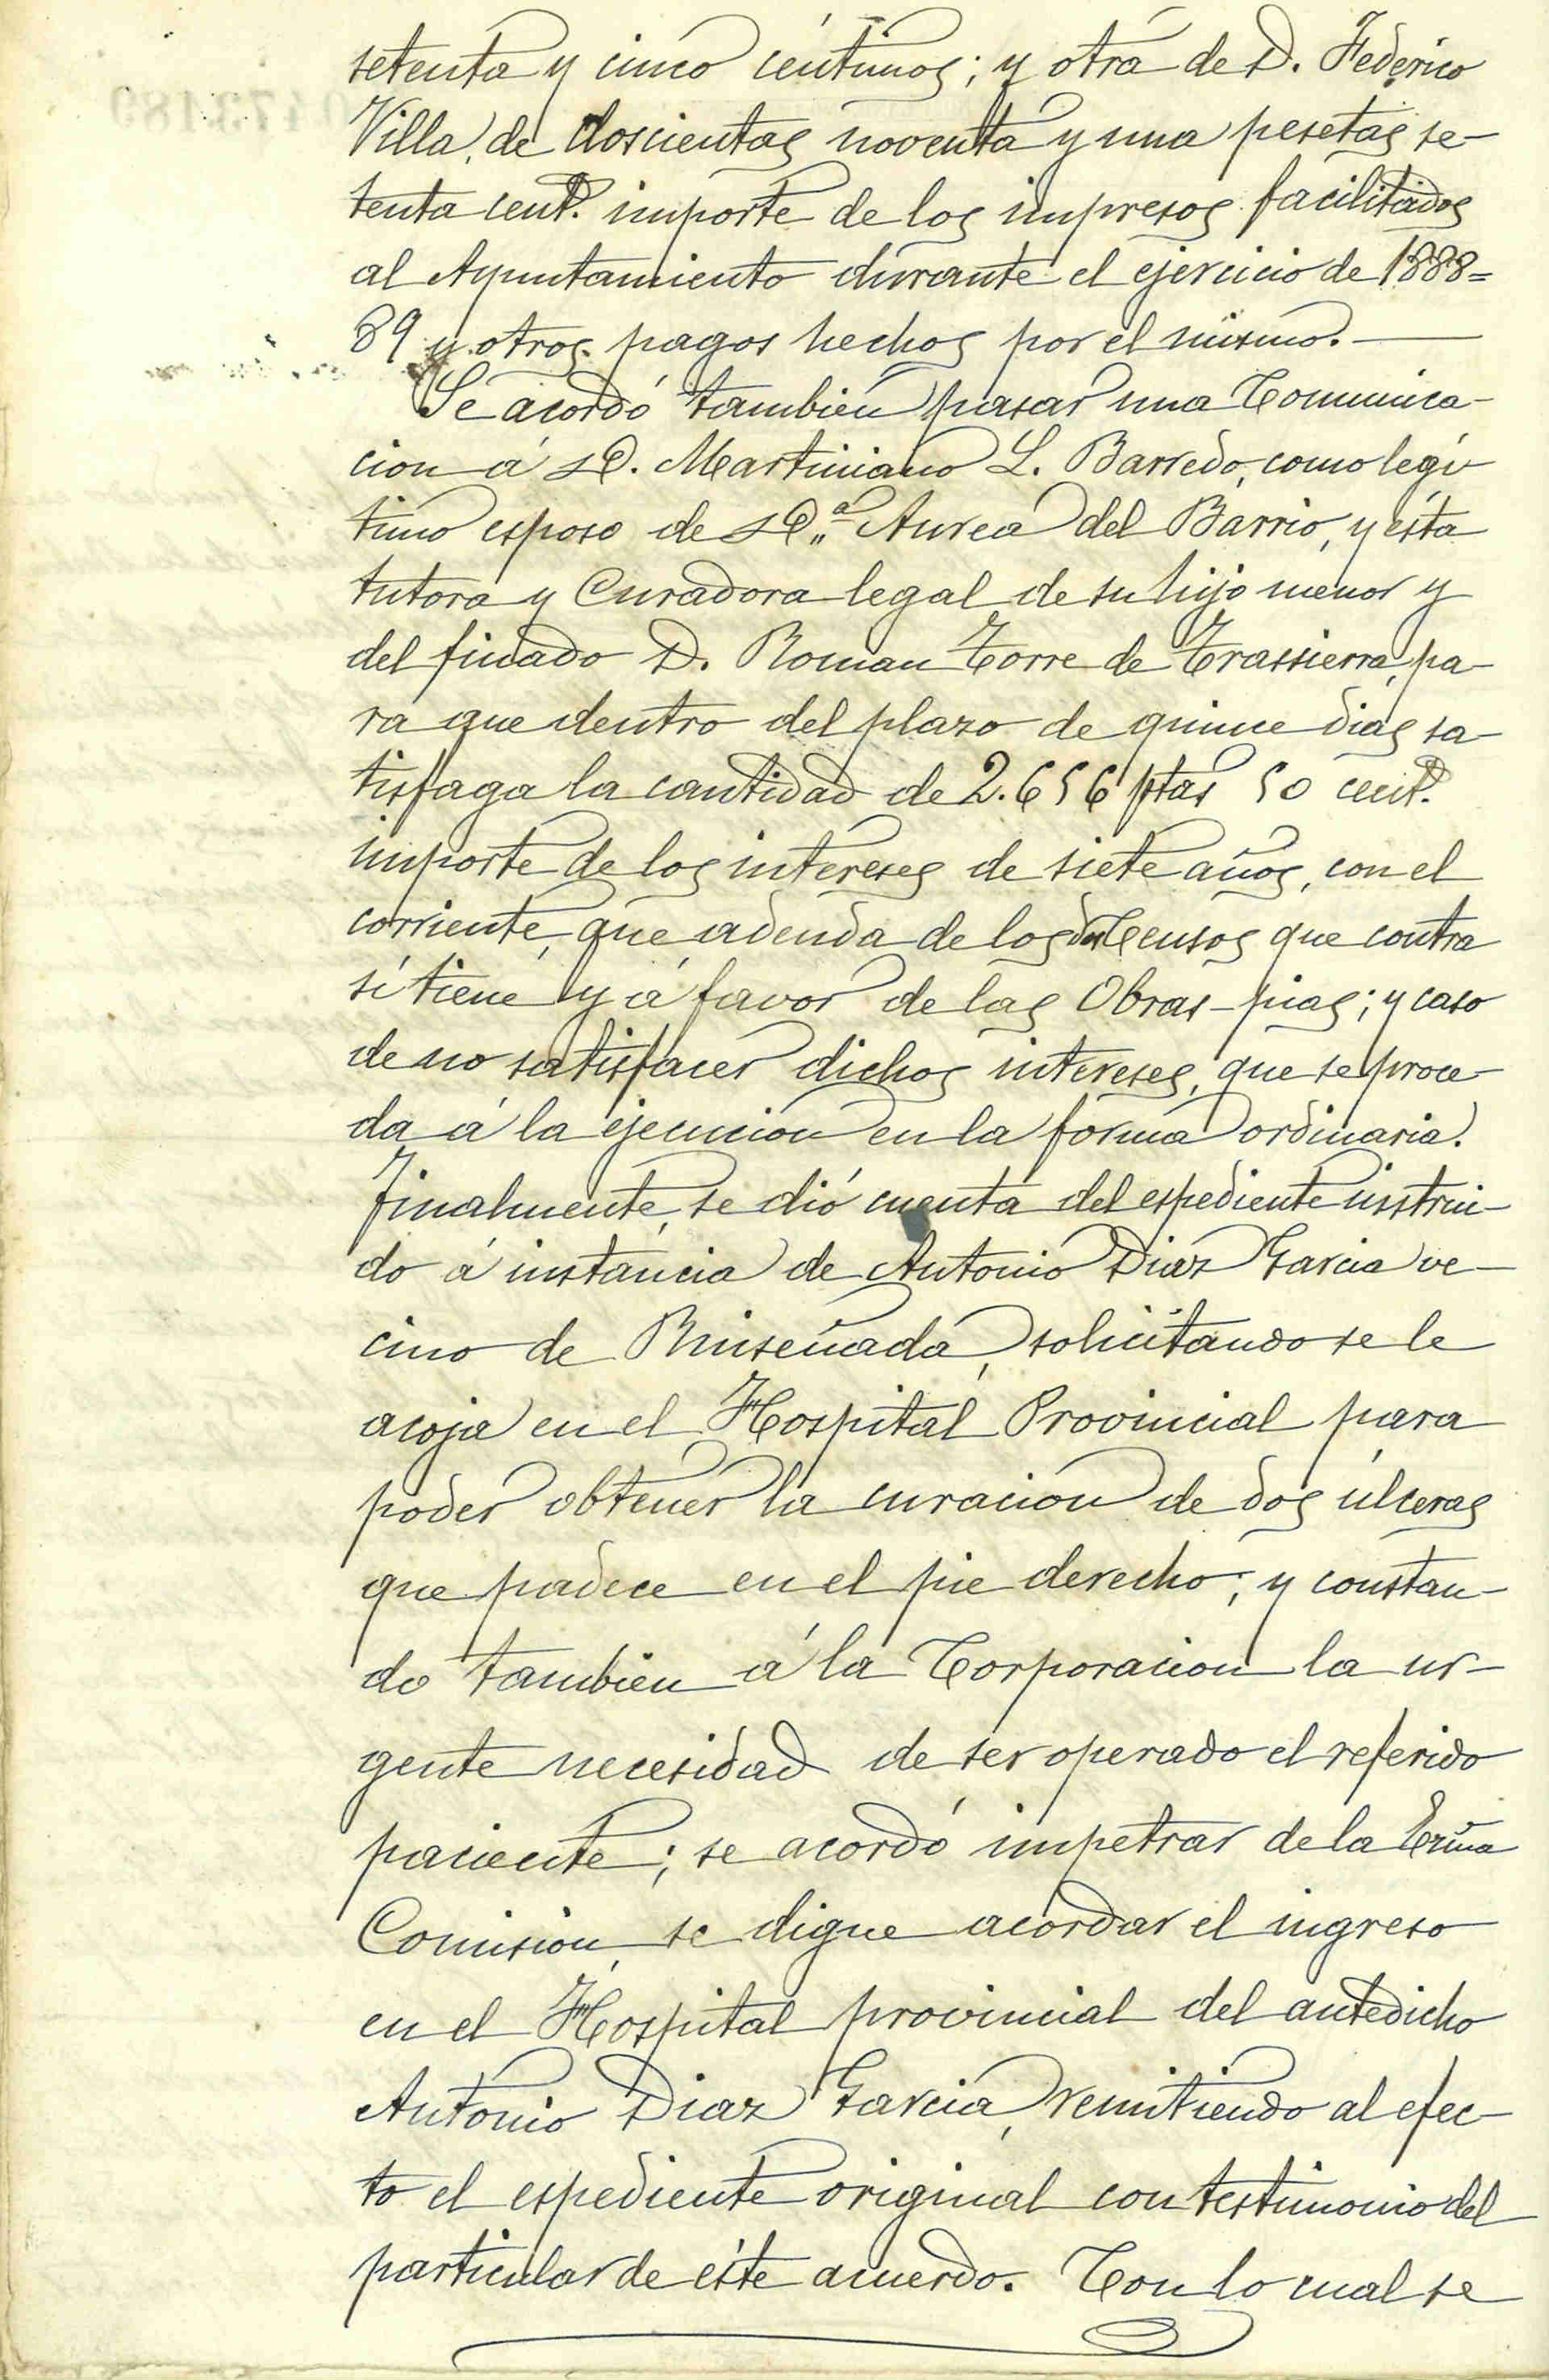 setenta y cinco céntimos; y otra de D. Federico
Villa, de doscientas noventa y una pesetas se-
tenta cent.s importe de los impresos facilitados
al Ayuntamiento durante el ejercicio de 1888=
89 y otros pagos hechos por el mismo.—
Se acordó tambien pasar una Comunica-
cion á D. Martiniano L. Barredo, como legi-
timo esposo de D.ª Aurea del Barrio, y ésta
tutora y Curadora legal de su hijo menor y
del finado D. Roman Torre de Trassierra, pa-
ra que dentro del plazo de quince dias sa-
tisfaga la cantidad de 2.656 ptas 50 cent.s
importe de los intereses de siete años, con el
corriente, que adeuda de los dos Censos que contra
sí tiene y á favor de las Obras-pias; y caso
de no satisfacer dichos intereses, que se proce-
da á la ejecucion en la forma ordinaria.
Finalmente, se dió cuenta del espediente instrui-
do á instancia de Antonio Diaz Garcia ve-
cino de Ruiseñada, solicitando se le
acoja en el Hospital Provincial para
poder obtener la curacion de dos úlceras
que padece en el pie derecho; y constan-
do tambien á la Corporacion la ur-
gente necesidad de ser operado el referido
paciente; se acordó impetrar de la Exma
Comision, se digne acordar el ingreso
en el Hospital provincial del antedicho
Antonio Diaz Garcia, remitiendo al efec-
to el espediente original con testimonio del
particular de éste acuerdo. Con lo cual se